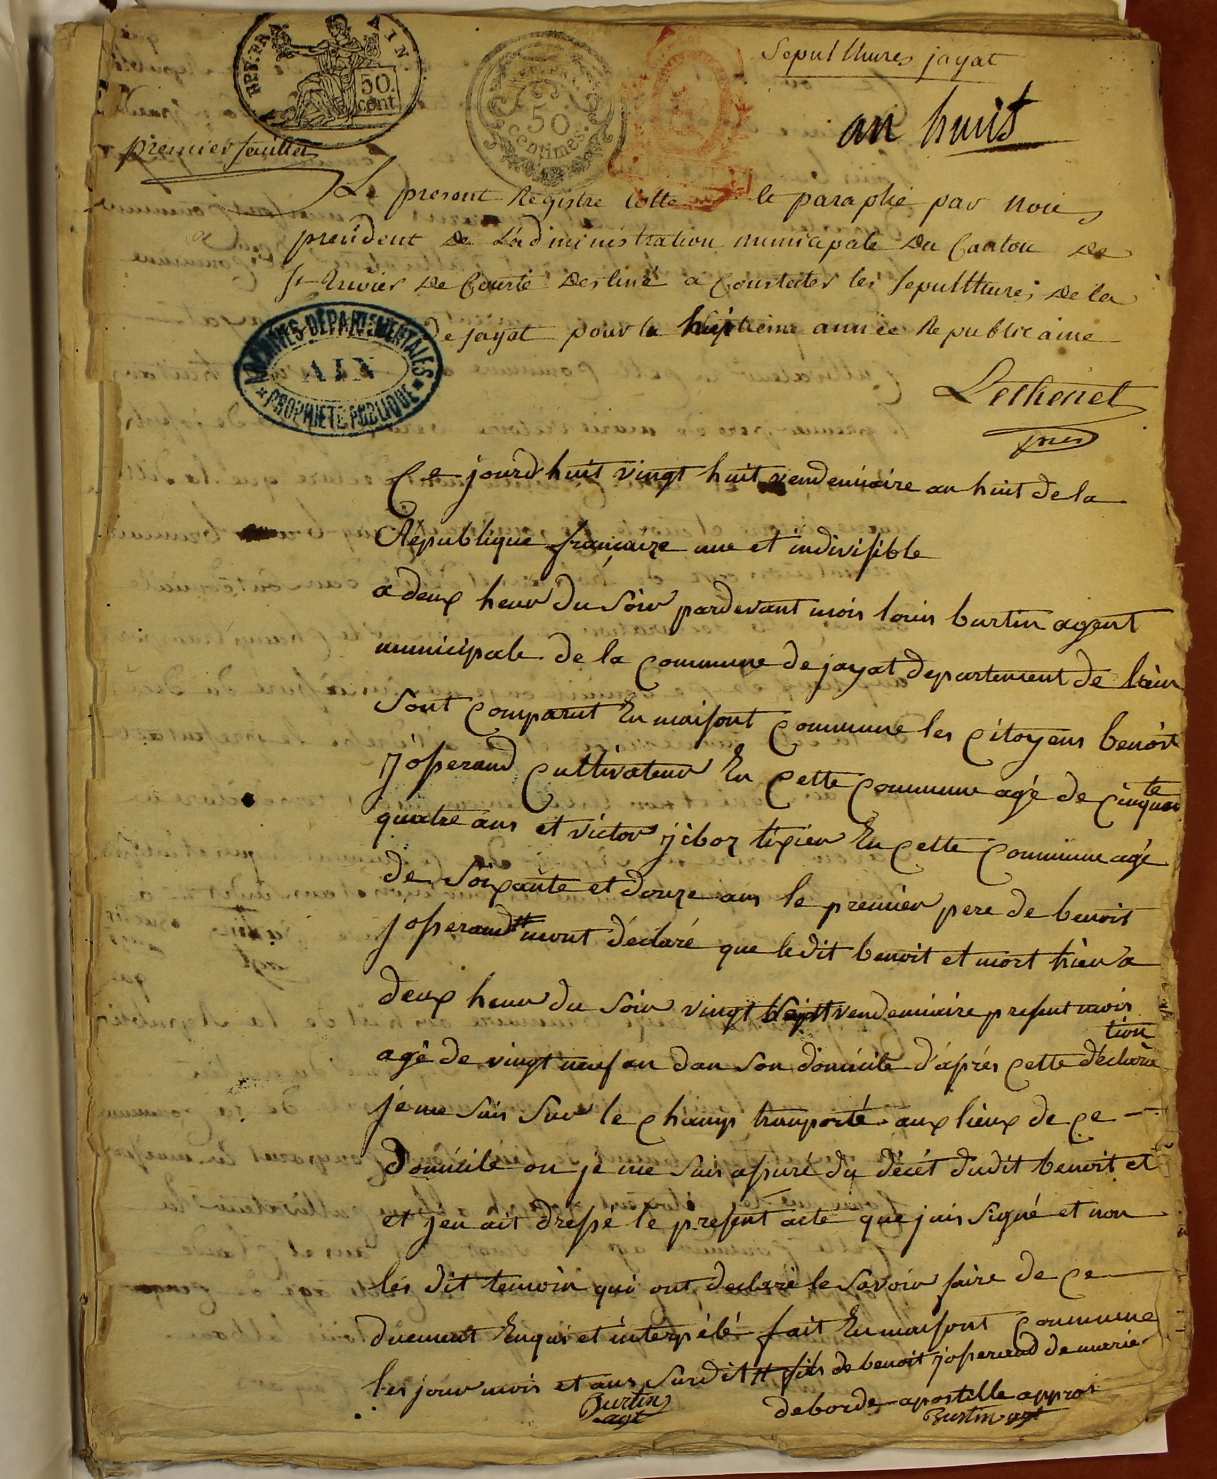 REP. FRA. AIN.
50. cent.
50 centimes.
Sepultures jayat
an huit
premier feuillet
Le present Registre cotte et paraphé par nous
president de L'administration municipale du Canton de
St trivier de Courte destiné a Constater les sepulttures de la
de jayat pour la huitieme année Republicaine
ARCHIVES DÉPARTEMENTALES
AIN
PROPRIÉTÉ PUBLIQUE
Ce jourd'huit vingt huit vendemiaire an huit de la
République françaize une et indivisible
a deux heur du soir pardevant mois louis burtin agent
municipale de la commune de jayat departement de l'ain
sont comparut En maisont commune les citoyens benoit
joperand cultivateur En cette commune agé de cinquante
quatre ans et victor tixier En cette commune agé
de soixante et douze ans le premier pere de benoit
joperand # mont déclaré que ledit benoit et mort hier a
deux heur du soir vingt sept vendemiaire present mois
agé de vingt neuf an dan son domicile d'aprés cette déclaration
je me suis sur le champ tranporté aux lieux de ce
Domicile ou je me suis assuré du décét dudit benoit et
et jen ait dressé le present acte que jais signé et non
les dit temoin qui ont declaré le savoir faire de ce
duement Enquis et interpélé fait En maisont commune
les jour mois et ans susdit # fils de benoit joperand de marie
deborde apostille approt
Burtin agt
Burtin agt